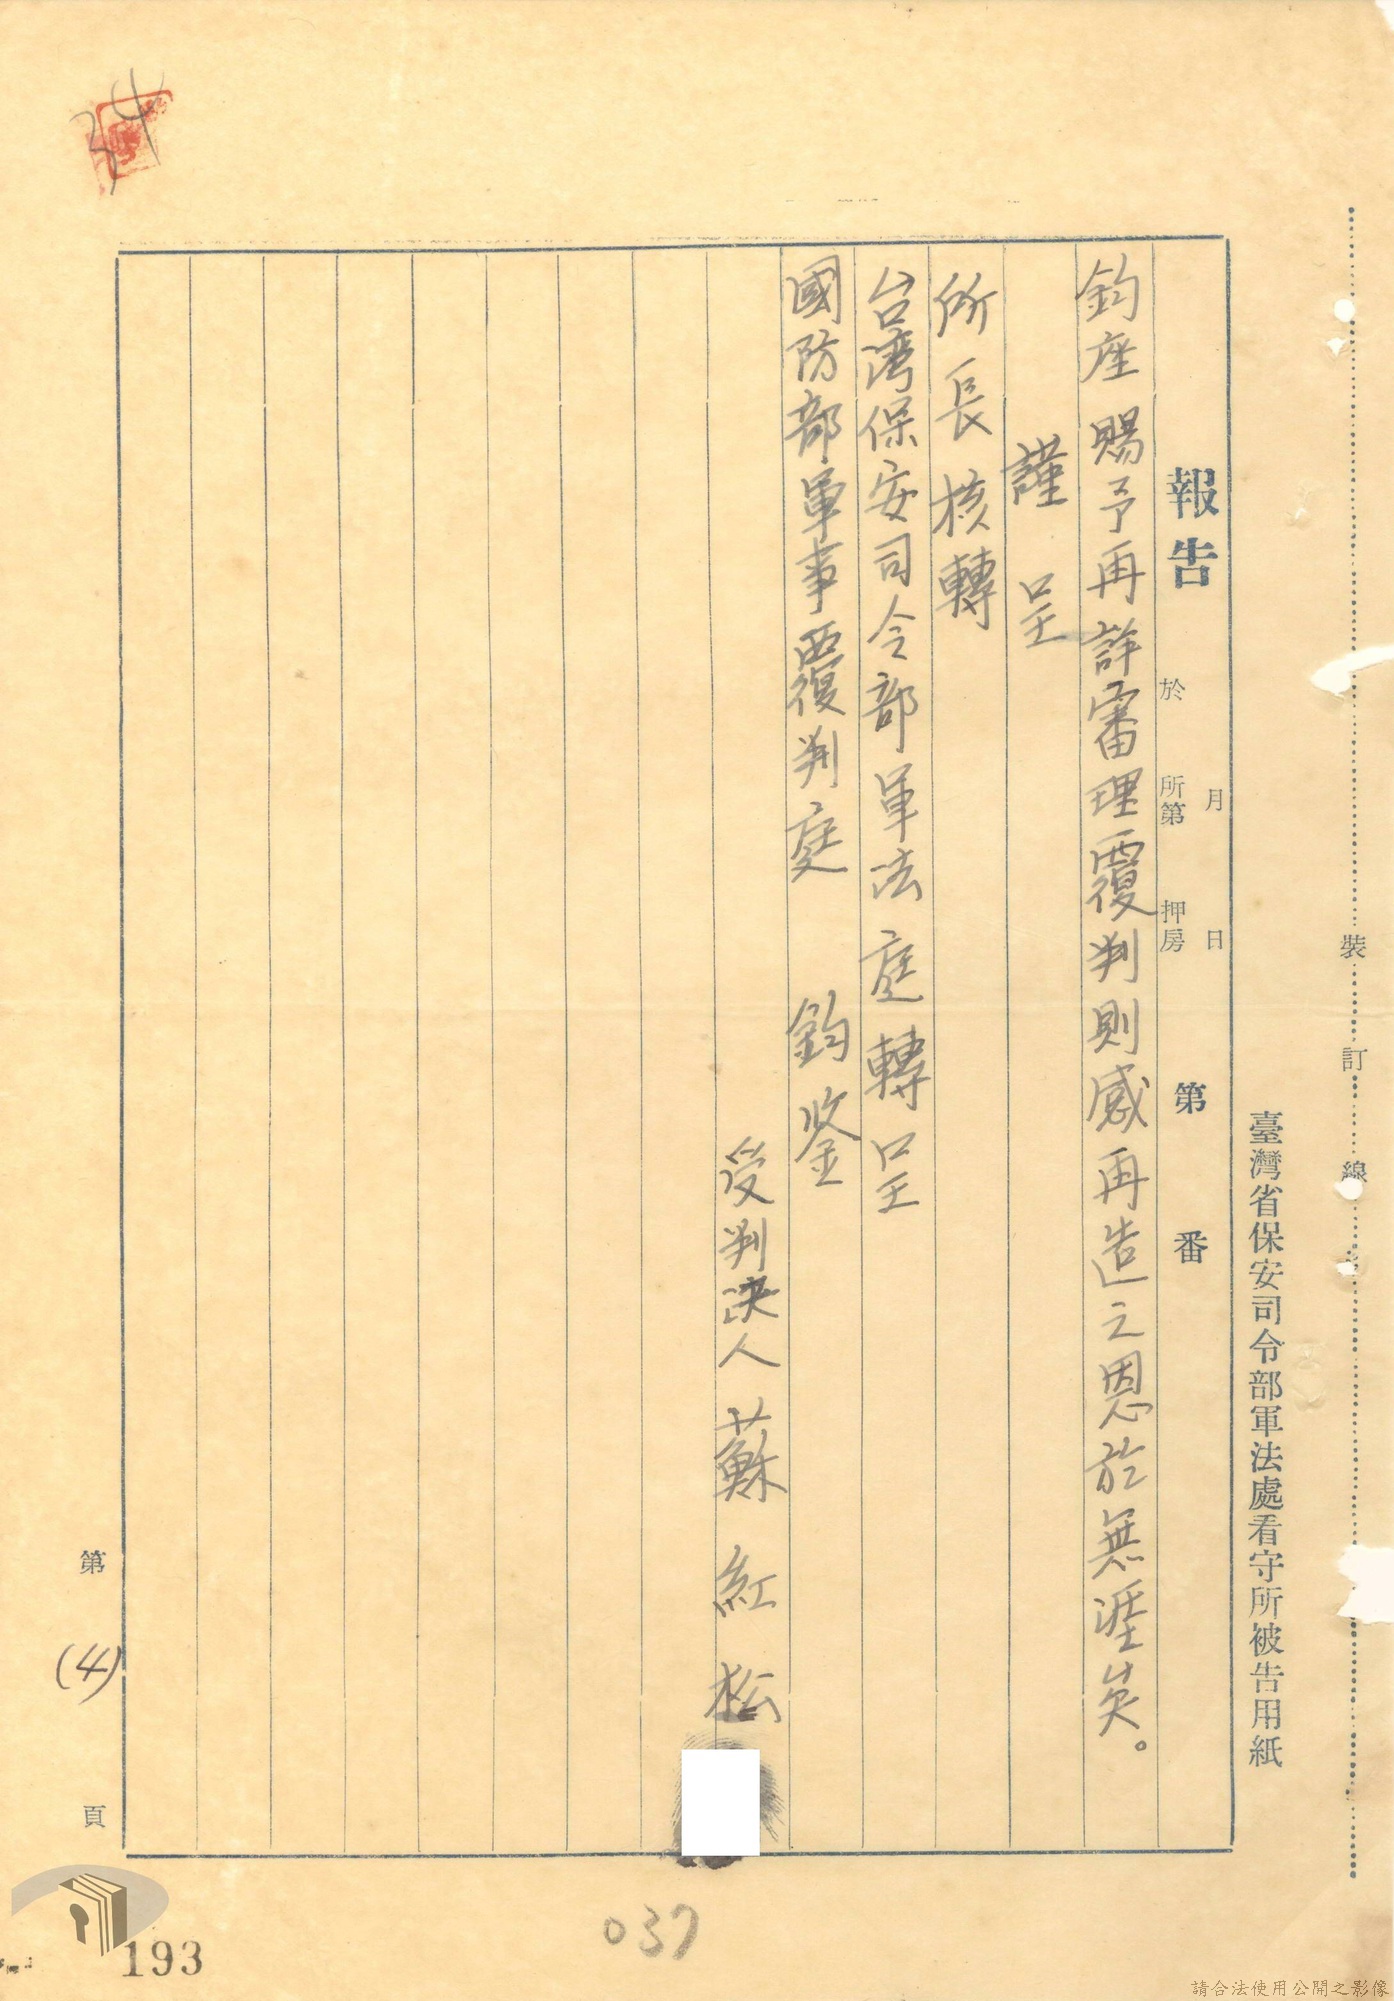 臺灣省保安司令部軍法處看守所被告用紙
裝訂線
報告
月 日
於 所第 押房
第 番
鈞座 賜予再詳審理覆判則感再造之恩於無涯矣。
謹 呈
所長 核轉
台湾保安司令部軍法庭轉呈
國防部軍事覆判庭 鈞鋻
受判決人 蘇紅松
34
第 (4) 頁
193
037
請合法使用公開之影像